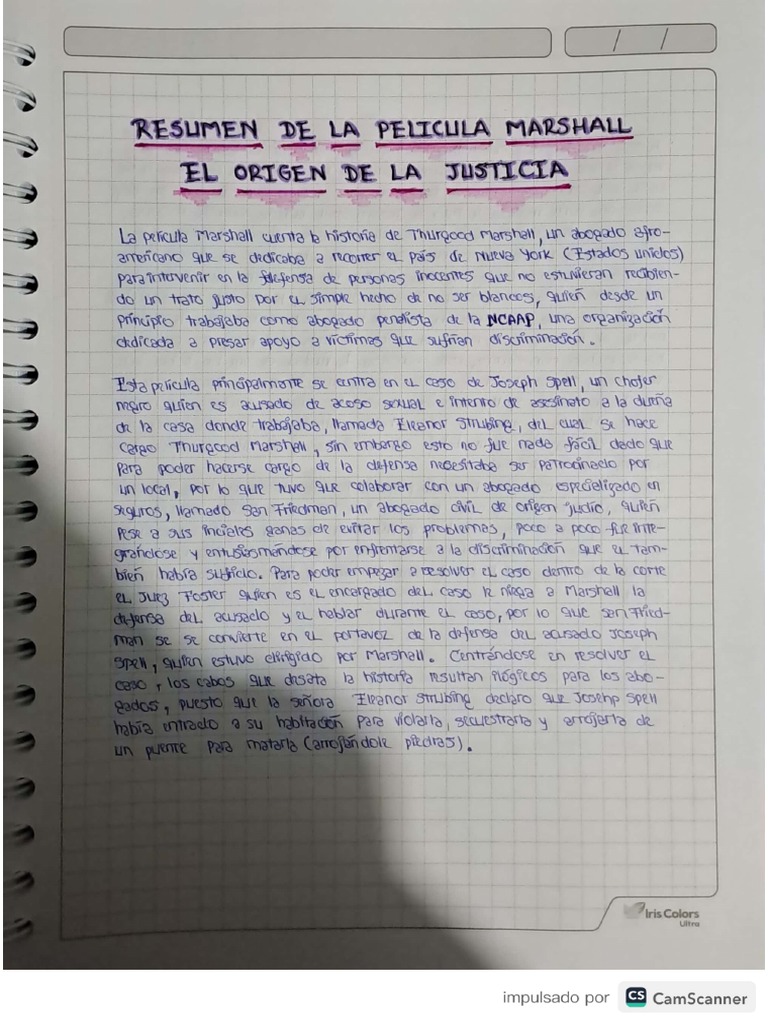 / /
RESUMEN DE LA PELICULA MARSHALL
EL ORIGEN DE LA JUSTICIA
La película Marshall cuenta la historia de Thurgood Marshall, un abogado afro-
americano que se dedicaba a recorrer el país de Nueva York (Estados unidos)
para intervenir en la defensa de personas inocentes que no estuvieran recibien-
do un trato justo por el simple hecho de no ser blancos, quién desde un
principio trabajaba como abogado penalista de la NCAAP, una organización
dedicada a presar apoyo a víctimas que sufrian discriminación.
Esta película principalmente se centra en el caso de Joseph Spell, un chofer
negro quien es acusado de acoso sexual e intento de asesinato a la dueña
de la casa donde trabajaba, llamada Eleanor Strubing, del cual se hace
cargo Thurgood Marshall, sin embargo esto no fue nada fácil dado que
para poder hacerse cargo de la defensa necesitaba ser patrocinado por
un local, por lo que tuvo que colaborar con un abogado especializado en
seguros, llamado San Friedman, un abogado civil de origen judío, quién
pese a sus inciales ganas de evitar los problemas, poco a poco fue inte-
grandose y entusiasmándose por enfrentarse a la discriminación que el tam-
bién había sufrido. Para poder empezar a resolver el caso dentro de la corte
el Juez Foster quien es el encargado del caso le niega a Marshall la
defensa del acusado y el hablar durante el caso, por lo que San Fried-
man se se convierte en el portavoz de la defensa del acusado Joseph
Spell, quien estuvo dirigido por Marshall. Centrándose en resolver el
caso, los cabos que desata la historia resultan ilógicos para los abo-
gados, puesto que la señora Eleanor Strubing declaro que Josehp Spell
había entrado a su habitación para violarla, secuestrarla y arrojarla de
un puente para matarla (arrojándole piedras).
Iris Colors
Ultra
impulsado por CS CamScanner